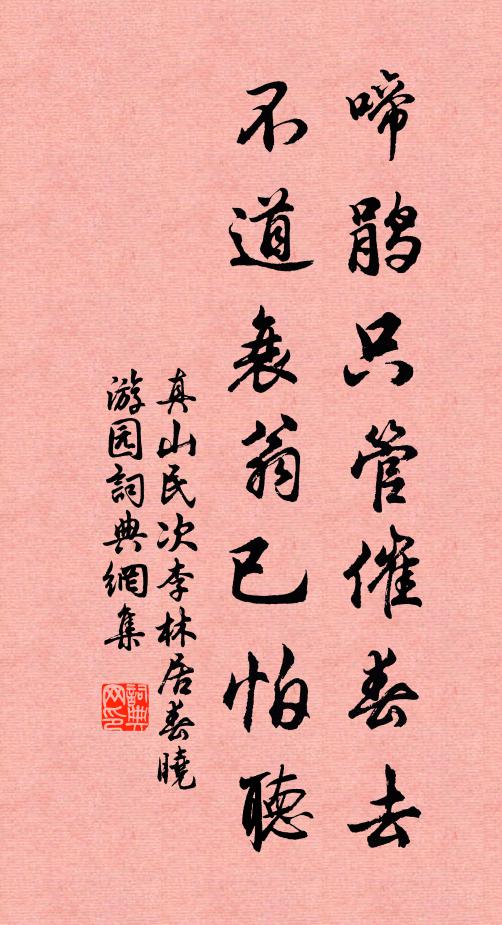 啼鹃只管催春去
不道衰翁已怕聽
真山民次李林居春曉
游园詞典網集
詞典
网印